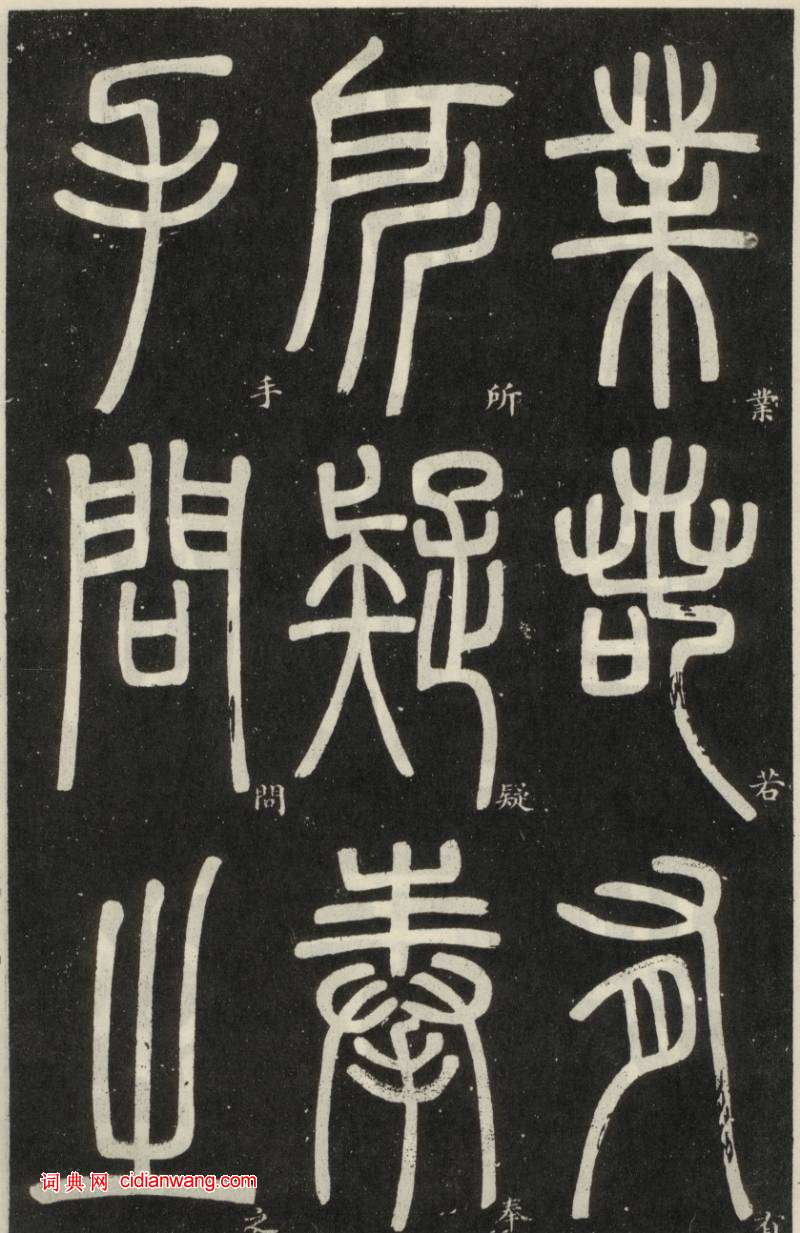 業若有
業若有
所疑奉
所疑奉
手問之
手問之
词典网 cidianwang.com